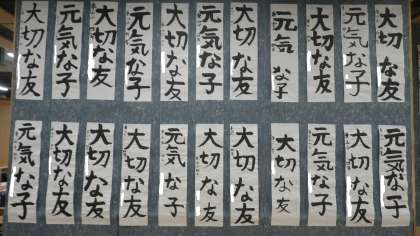 大切な友
元気な子
大切な友
元気な子
大切な友
元気な子
大切な友
元気な子
大切な友
元気な子
大切な友
元気な子
大切な友
元気な子
大切な友
大切な友
大切な友
元気な子
大切な友
大切な友
大切な友
元気な子